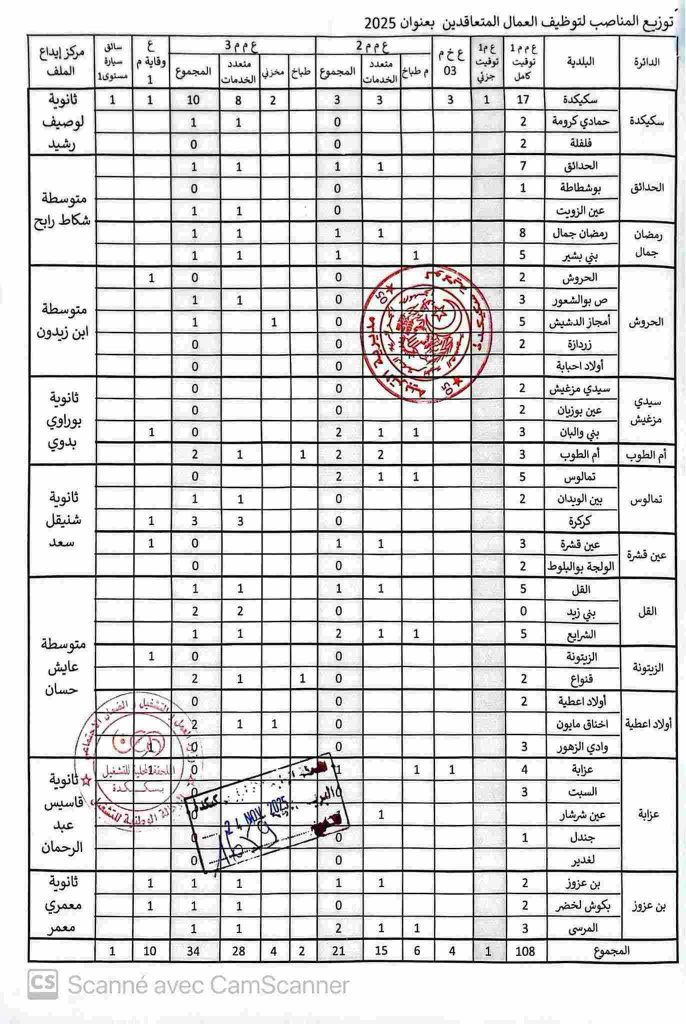 توزيع المناصب لتوظيف العمال المتعاقدين بعنوان 2025
الدائرة | البلدية | ع م م 1 توقيت كامل | ع م1 توقيت جزئي | ع خ م 03 | ع م م 2 | ع م م 3 | ع وقاية م 1 | سائق سيارة مستوى1 | مركز إيداع الملف
م طباخ | متعدد الخدمات | المجموع | طباخ | مخزني | متعدد الخدمات | المجموع
سكيكدة | سكيكدة | 17 | 1 | 3 | 3 | 3 | 2 | 8 | 10 | 1 | 1 | ثانوية لوصيف رشيد
حمادي كرومة | 2 | 0 | 1 | 1
فلفلة | 2 | 0 | 0
الحدائق | الحدائق | 7 | 1 | 1 | 1 | 1 | متوسطة شكاط رابح
بوشطاطة | 1 | 0 | 0
عين الزويت | 0 | 1 | 1
رمضان جمال | رمضان جمال | 8 | 1 | 1 | 1 | 1
بني بشير | 5 | 1 | 1 | 1 | 1
الحروش | الحروش | 2 | 0 | 0 | 1 | متوسطة ابن زيدون
ص بوالشعور | 3 | 0 | 1 | 1
أمجاز الدشيش | 5 | 0 | 1 | 1
زردازة | 2 | 0 | 0
أولاد احبابة | 0 | 0
سيدي مزغيش | سيدي مزغيش | 2 | 0 | 0 | ثانوية بوراوي بدوي
عين بوزيان | 2 | 0 | 0
بني والبان | 3 | 1 | 1 | 2 | 0 | 1
أم الطوب | أم الطوب | 3 | 2 | 2 | 1 | 1 | 2
تمالوس | تمالوس | 5 | 1 | 1 | 2 | 0 | ثانوية شنيقل سعد
بين الويدان | 2 | 0 | 1 | 1
كركرة | 0 | 3 | 3 | 1
عين قشرة | عين قشرة | 3 | 1 | 1 | 0 | 1
الولجة بوالبلوط | 2 | 0 | 0
القل | القل | 5 | 1 | 1 | 1 | 1 | متوسطة عايش حسان
بني زيد | 0 | 0 | 2 | 2
الشرايع | 5 | 1 | 1 | 2 | 1 | 1
الزيتونة | الزيتونة | 0 | 0 | 1
قنواع | 2 | 0 | 1 | 1 | 2
أولاد اعطية | أولاد اعطية | 2 | 0 | 0
اخناق مايون | 0 | 1 | 1 | 2
وادي الزهور | 3 | 0 | 0 | 1
عزابة | عزابة | 4 | 1 | 1 | 1 | 0 | 1 | ثانوية قاسيس عبد الرحمان
السبت | 3 | 0
عين شرشار | 1
جندل | 1 | 0
لغدير | 0 | 0
بن عزوز | بن عزوز | 2 | 1 | 1 | 1 | 1 | 1 | ثانوية معمري معمر
بكوش لخضر | 2 | 0 | 1 | 1 | 1
المرسى | 3 | 1 | 1 | 2 | 1 | 1
المجموع | 108 | 1 | 4 | 6 | 15 | 21 | 2 | 4 | 28 | 34 | 10 | 1
الملحقة المحلية للتشغيل
بسكيكدة
24 NOV 2025
1659
CS Scanné avec CamScanner